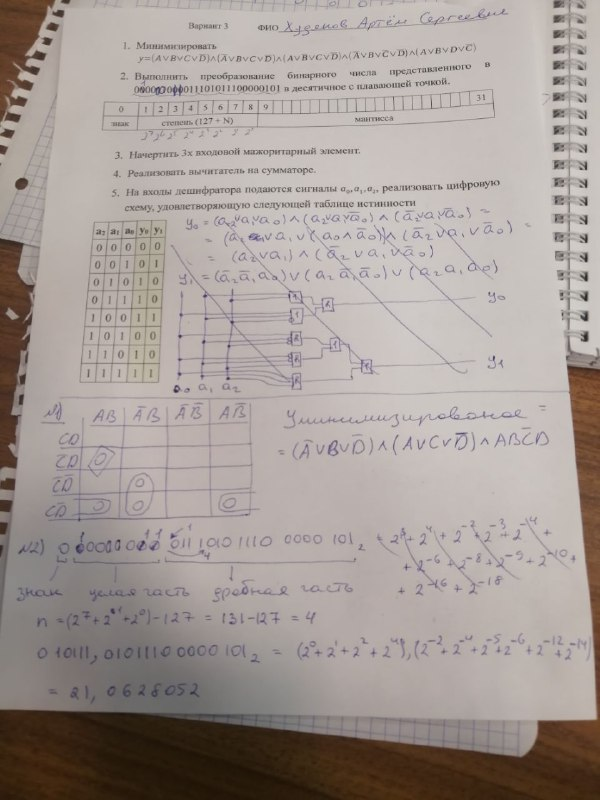 Вариант 3 ФИО Худяков Артём Сергеевич
1. Минимизировать
y=(A∨B∨C∨D̅)∧(A̅∨B∨C∨D̅)∧(A∨B̅∨C∨D̅)∧(A̅∨B∨C̅∨D̅)∧(A∨B∨D∨C̅)
2. Выполнить преобразование бинарного числа представленного в
в десятичное с плавающей точкой.
0 1 2 3 4 5 6 7 8 9 31
знак степень (127 + N) мантисса
3. Начертить 3х входовой мажоритарный элемент.
4. Реализовать вычитатель на сумматоре.
5. На входы дешифратора подаются сигналы a₀,a₁,a₂, реализовать цифровую
схему, удовлетворяющую следующей таблице истинности
a₂ a₁ a₀ y₀ y₁
0 0 0 0 0
0 0 1 0 1
0 1 0 1 0
0 1 1 1 0
1 0 0 1 1
1 0 1 0 0
1 1 0 1 0
1 1 1 1 1
y₁ = (a̅₂a̅₁a₀)∨(a₂a̅₁a̅₀)∨(a₂a₁a₀)
y₀
y₁
a₁ a₂
AB A̅B A̅B̅ AB̅
CD
Уминимизированое =
= (A̅∨B∨D̅)∧(A∨C∨D̅)∧ABC̅D
№2)
знак целая часть дробная часть
n = (2⁷+2¹+2⁰)-127 = 131-127 = 4
010111,0101110 0000 101₂ = (2⁰+2¹+2²+2⁴),(2⁻²+2⁻⁴+2⁻⁵+2⁻⁶+2⁻¹²+2⁻¹⁴)
= 21,0628052